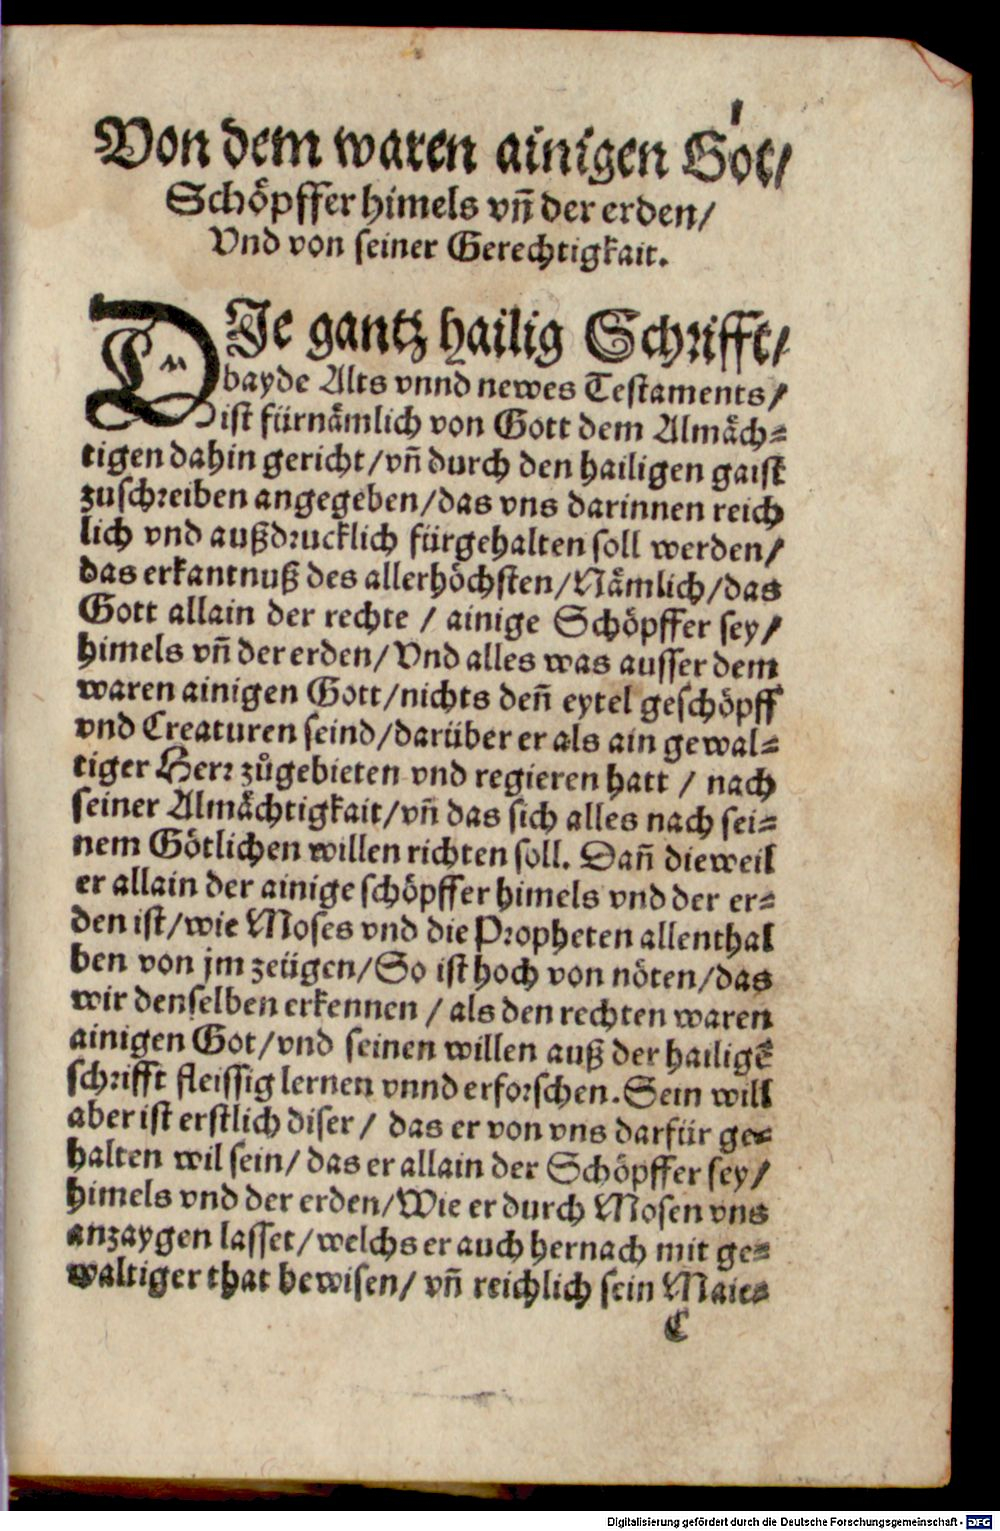 1
Von dem waren ainigen Got/
Schöpffer himels vñ der erden/
Vnd von seiner Gerechtigkait.
DIe gantz hailig Schrifft/
bayde Alts vnnd newes Testaments/
ist fürnämlich von Gott dem Almäch-
tigen dahin gericht/vñ durch den hailigen gaist
zuschreiben angegeben/das vns darinnen reich
lich vnd außdrucklich fürgehalten soll werden/
das erkantnuß des allerhöchsten/Nämlich/das
Gott allain der rechte / ainige Schöpffer sey/
himels vñ der erden/Vnd alles was ausser dem
waren ainigen Gott/nichts deñ eytel geschöpff
vnd Creaturen seind/darüber er als ain gewal-
tiger Herr zůgebieten vnd regieren hatt / nach
seiner Almächtigkait/vñ das sich alles nach sei-
nem Götlichen willen richten soll. Dañ dieweil
er allain der ainige schöpffer himels vnd der er-
den ist/wie Moses vnd die Propheten allenthal
ben von jm zeügen/So ist hoch von nöten/das
wir denselben erkennen / als den rechten waren
ainigen Got/vnd seinen willen auß der hailigē
schrifft fleissig lernen vnnd erforschen. Sein will
aber ist erstlich diser / das er von vns darfür ge-
halten wil sein/ das er allain der Schöpffer sey/
himels vnd der erden/Wie er durch Mosen vns
anzaygen lasset/welchs er auch hernach mit ge-
waltiger that bewisen/ vñ reichlich sein Maie-
C
Digitalisierung gefördert durch die Deutsche Forschungsgemeinschaft - DFG